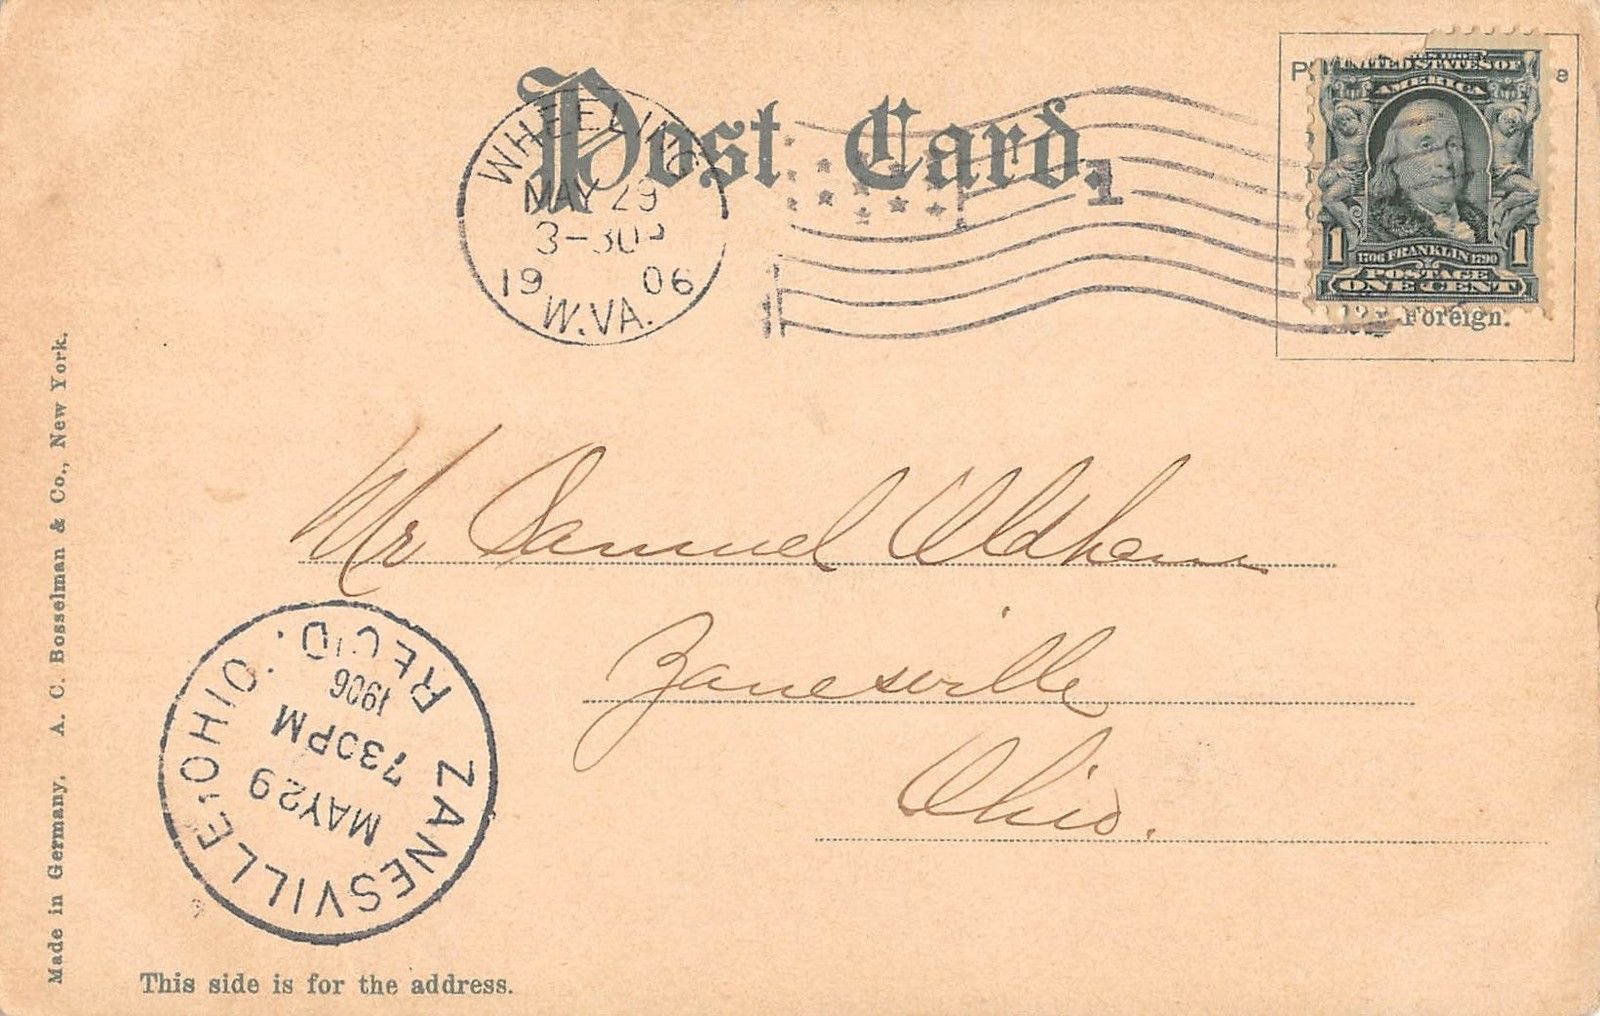 Post Card.
WHEELING
MAY 29
3-30P
1906
W.VA.
1
UNITED STATES OF
AMERICA
1 1706 FRANKLIN 1790 1
POSTAGE
ONE CENT
Foreign.
Mr Samuel Oldham
Zanesville
Ohio.
ZANESVILLE, OHIO.
REC'D.
MAY 29
730PM
1906
Made in Germany. A. C. Bosselman & Co., New York.
This side is for the address.